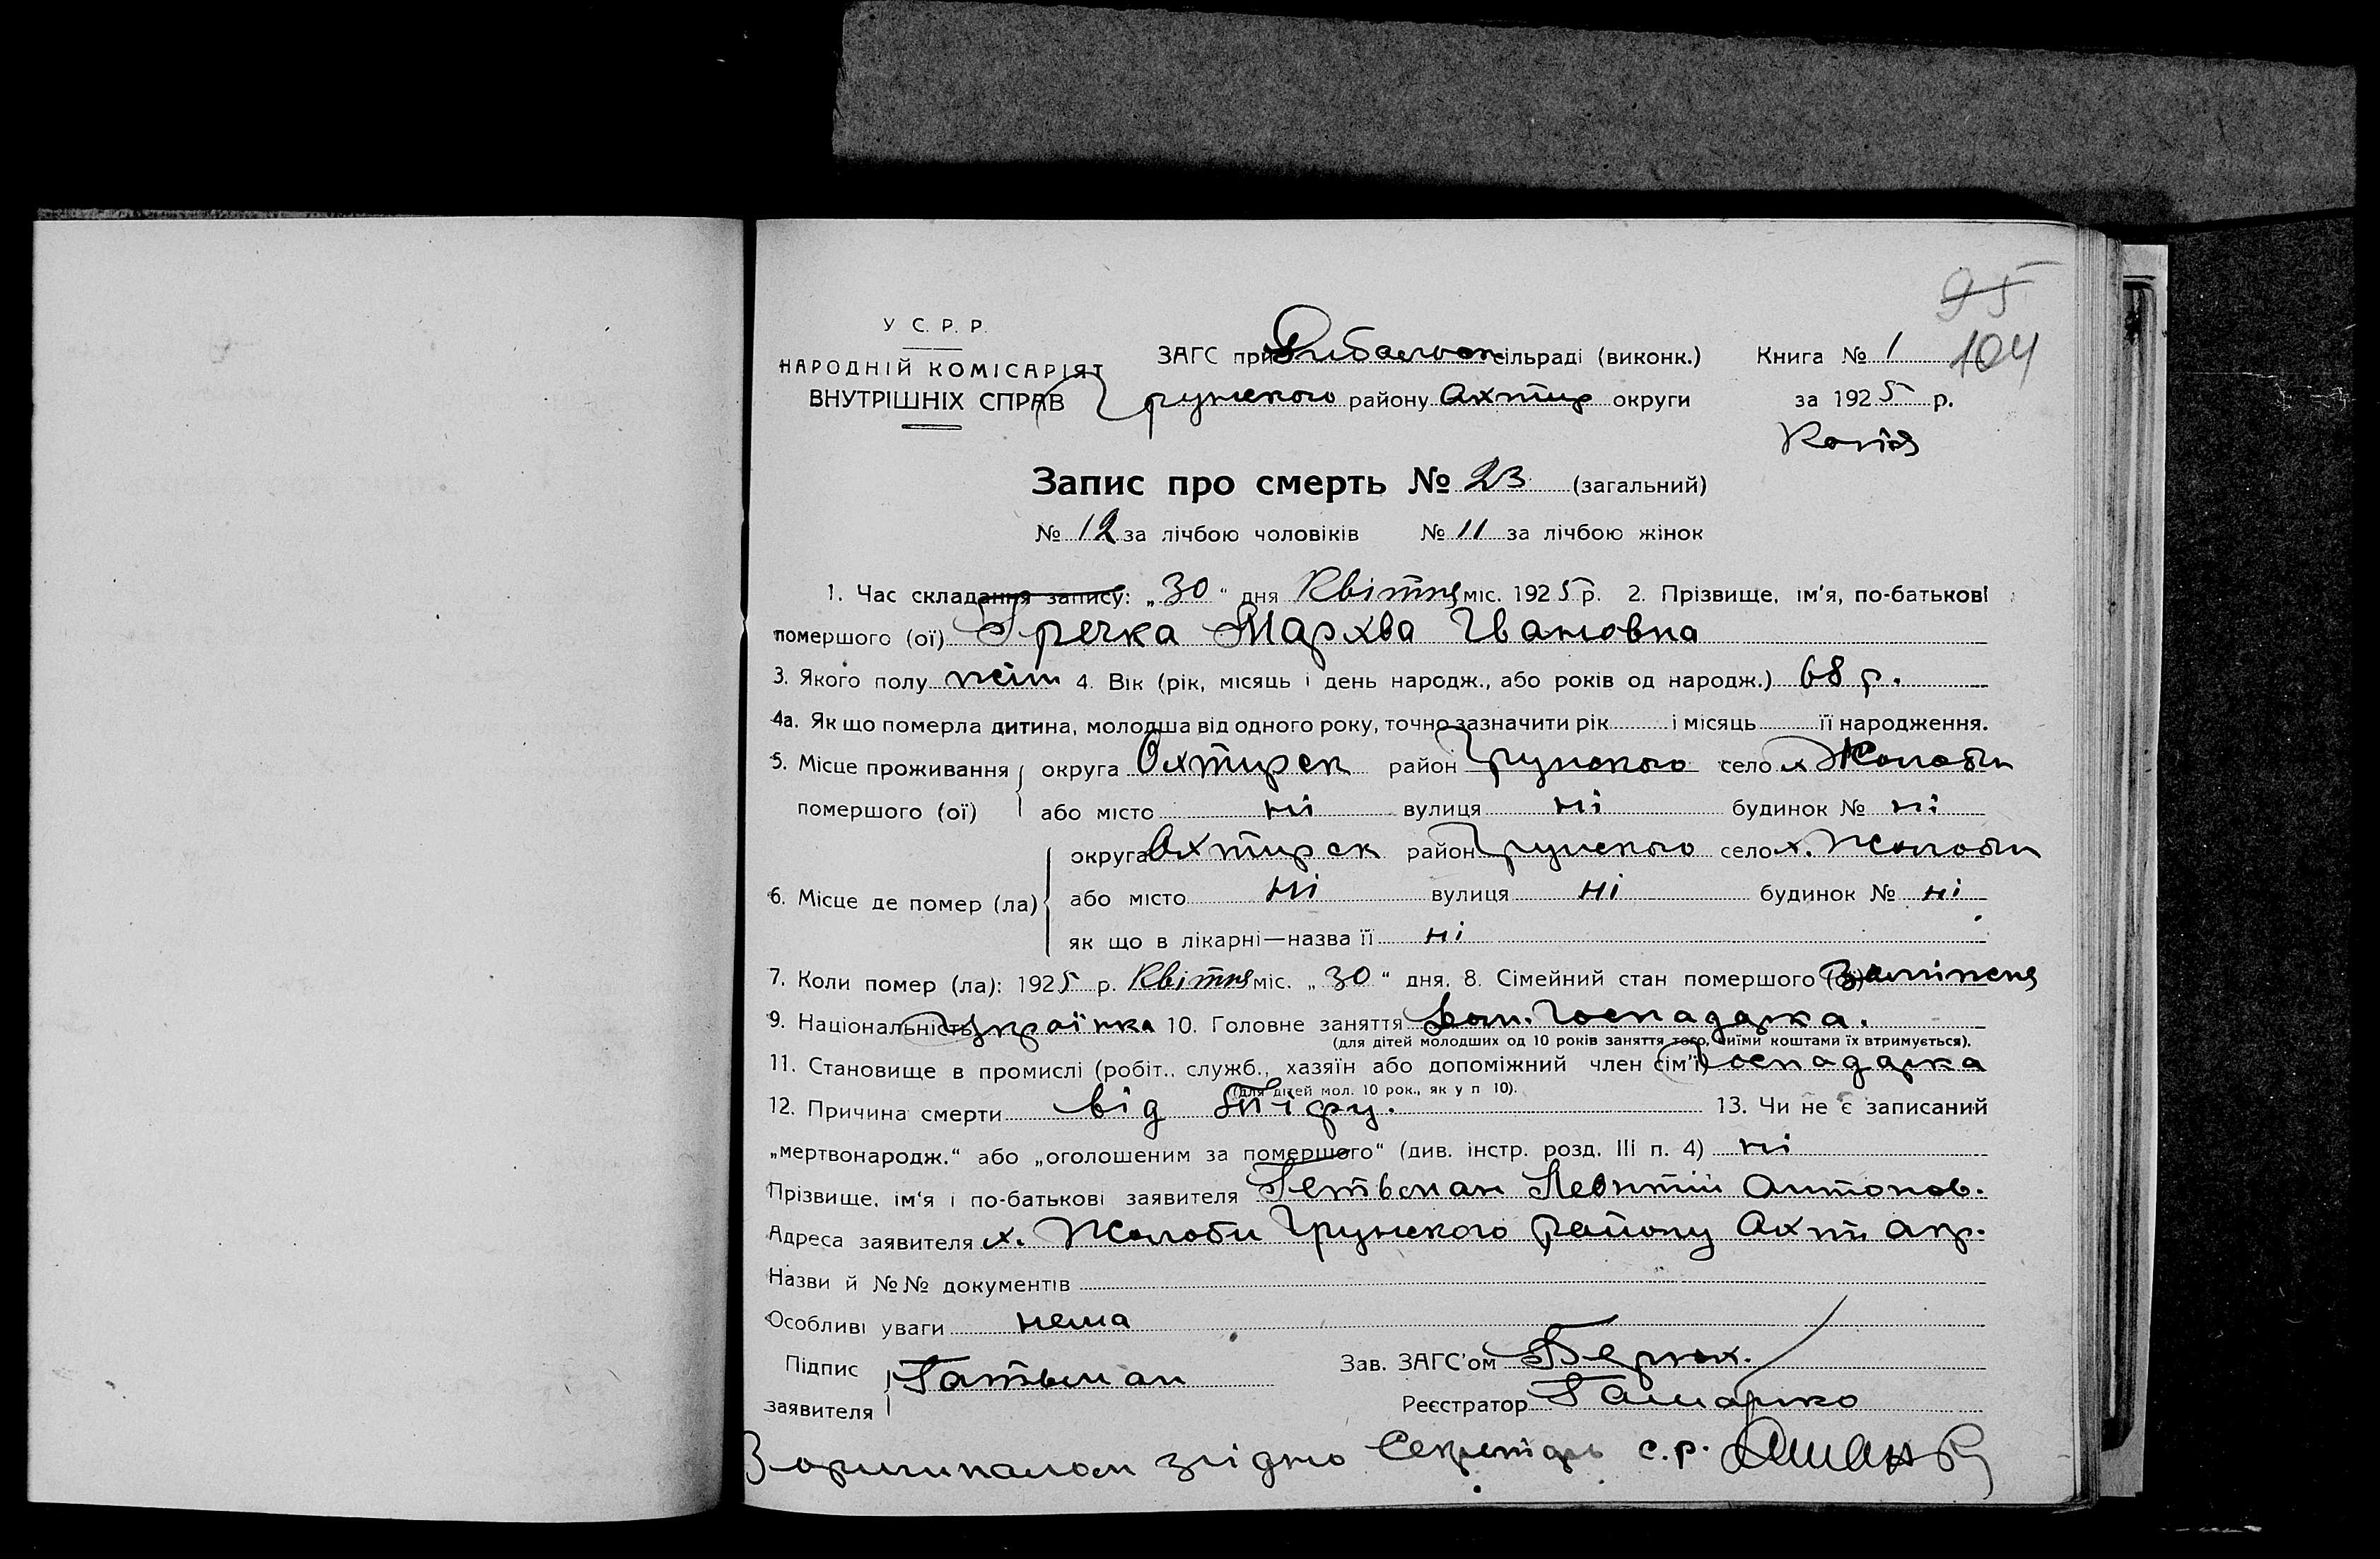 95
104
У С. Р. Р.
НАРОДНІЙ КОМІСАРІЯТ
ВНУТРІШНІХ СПРАВ
ЗАГС при Рибальск сільраді (виконк.) Книга № 1
Грунського району Ахтир округи за 1925 р.
Копія
Запис про смерть № 23 (загальний)
№ 12 за лічбою чоловіків № 11 за лічбою жінок
1. Час складання запису: „30“ дня Квітня міс. 1925 р. 2. Прізвище, ім'я, по-батькові
помершого (ої) Гречка Мархва Івановна
3. Якого полу жін 4. Вік (рік, місяць і день народж., або років од народж.) 68 р.
4а. Як що померла дитина, молодша від одного року, точно зазначити рік і місяць її народження.
5. Місце проживання помершого (ої) округа Охтирск район Грунського село х Жолоби
або місто ні вулиця ні будинок № ні
6. Місце де помер (ла) округа Охтирск район Грунського село х. Жолоби
або місто ні вулиця ні будинок № ні
як що в лікарні—назва її ні
7. Коли помер (ла): 1925 р. Квітня міс. „30“ дня. 8. Сімейний стан помершого (ої) Заміжня
9. Національність Українка 10. Головне заняття Госпадарка.
(для дітей молодших од 10 років заняття того, чиїми коштами їх втримується).
11. Становище в промислі (робіт., служб., хазяїн або допоміжний член сім'ї) Госпадарка
(для дітей мол. 10 рок., як у п 10).
12. Причина смерти від Тіфу. 13. Чи не є записаний
„мертвонародж.“ або „оголошеним за помершого“ (див. інстр. розд. III п. 4) ні
Прізвище, ім'я і по-батькові заявителя Гетьман Левнтій Антонов.
Адреса заявителя х. Жолоби Грунского району Ахт. акр.
Назви й №№ документів
Особливі уваги нема
Підпис заявителя Гатьман
Зав. ЗАГС'ом
Реєстратор Гамарко
З оригиналом згідно Секретарь с.р.